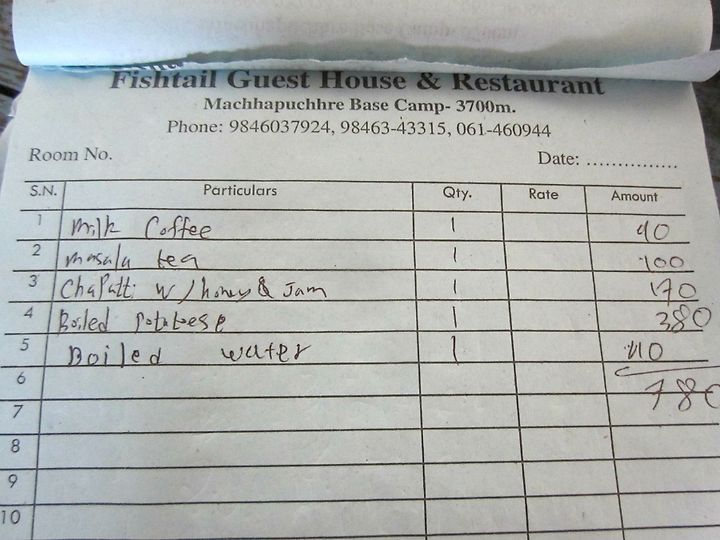 Fishtail Guest House & Restaurant
Machhapuchhre Base Camp- 3700m.
Phone: 9846037924, 98463-43315, 061-460944
Room No. Date: ...............
S.N. Particulars Qty. Rate Amount
1 Milk Coffee 1 90
2 masala tea 1 100
3 Chapatti w/honey & Jam 1 170
4 Boiled Potatoese 1 380
5 Boiled water 1 40
6
7 780
8
9
10